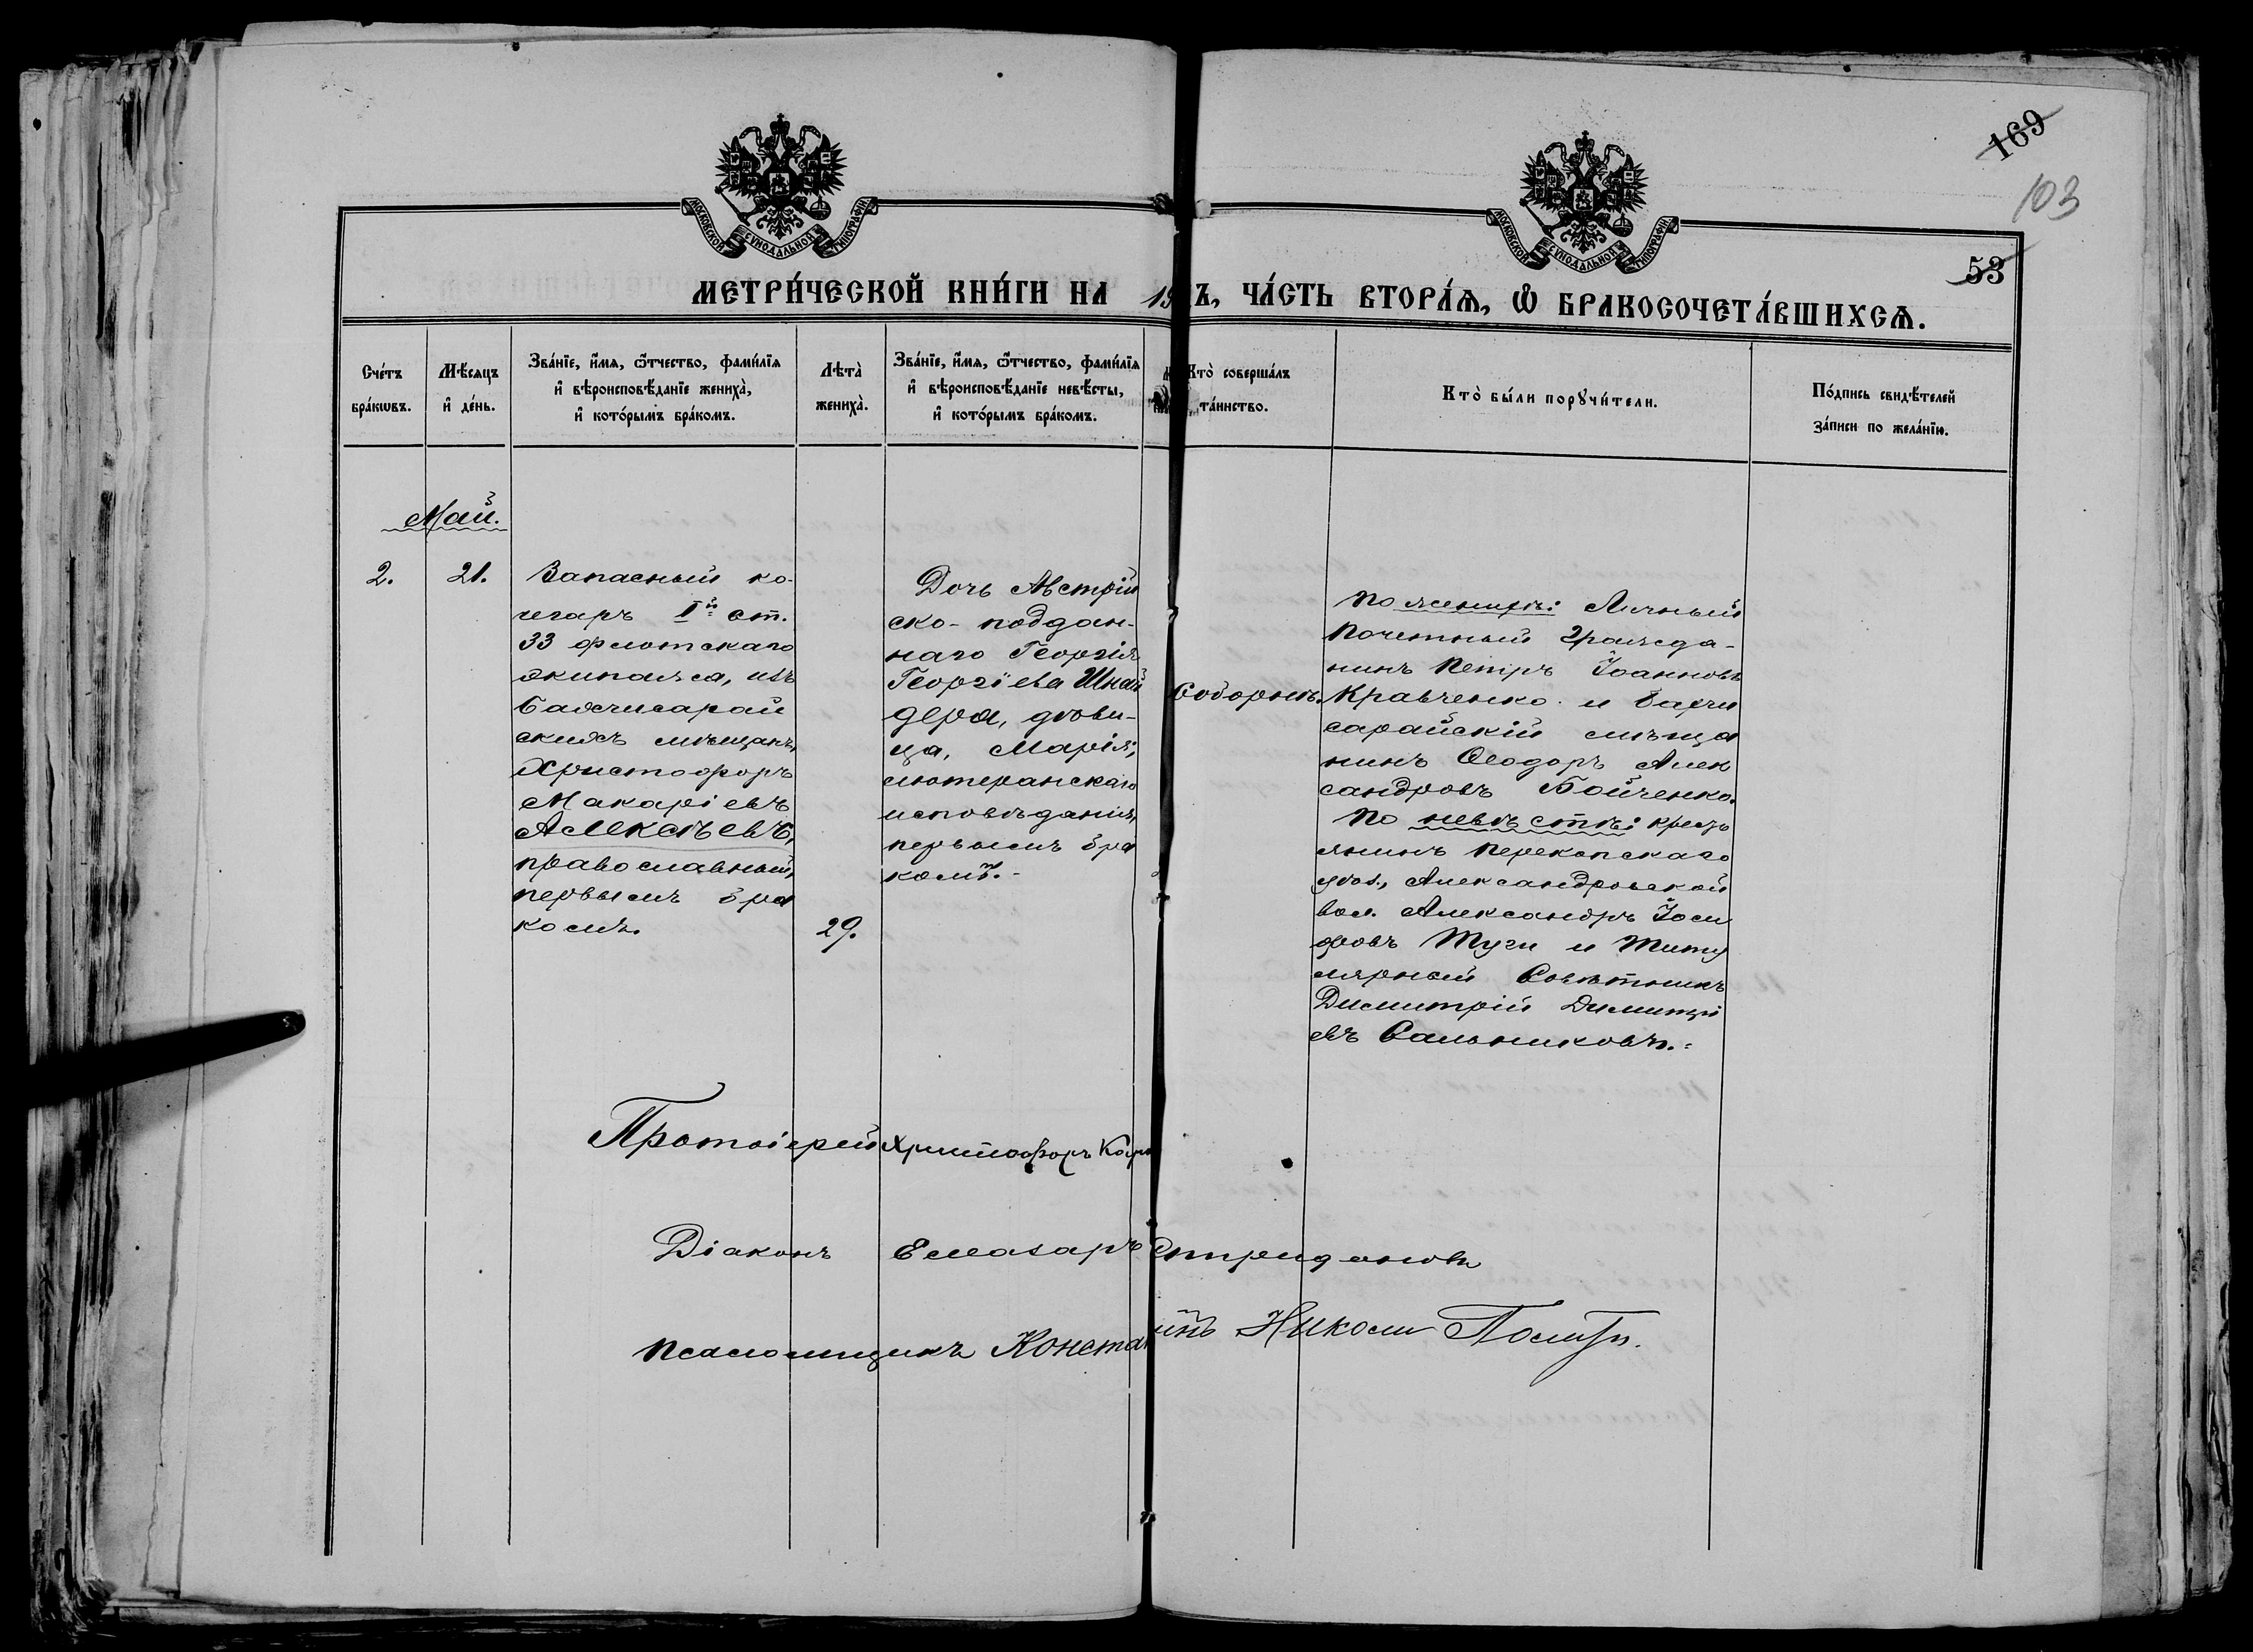 169
103
53
МОСКОВСКОЙ СѴНОДАЛЬНОЙ ТИПОГРАФІИ
МОСКОВСКОЙ СѴНОДАЛЬНОЙ ТИПОГРАФІИ
МЕТРИ́ЧЕСКОЙ КНИ́ГИ НА 19 Ъ, ЧА́СТЬ ВТОРА́Ѧ, Ѡ҆ БРАКОСОЧЕТА́ВШИХСѦ.
Сче́тъ
бра́кѡвъ.
Мѣ́сяцъ
и҆ де́нь.
Зва́нїе, и҆́мя, ѻ҆́тчество, фами́лїя
и҆ вѣроисповѣ́данїе жениха̀,
и҆ кото́рымъ бра́комъ.
Лѣта̀
жениха̀.
Зва́нїе, и҆́мя, ѻ҆́тчество, фами́лїя
и҆ вѣроисповѣ́данїе невѣ́сты,
и҆ кото́рымъ бра́комъ.
Кто̀ соверша́лъ
та́инство.
Кто̀ бы́ли порꙋчи́тели.
По́дпись свидѣ́телей
за́писи по жела́нїю.
Май.
2.
21.
Запасный ко-
чегаръ I й ст.
33 флотскаго
экипажа, изъ
Бахчисарай
скихъ мѣщанъ,
Христофоръ
Макаріевъ
Алексѣевъ,
православный,
первымъ бра
комъ.
29.
Дочь Австрій
ско-поддан-
наго Георгія
Георгіева Шнай
дера, дѣви-
ца, Марія,
лютеранскаго
исповѣданія,
первымъ бра
комъ.-
Соборнѣ.
По женихѣ: Личный
Почетный Гражда-
нинъ Петръ Іоанновъ
Кравченко и Бахчи
сарайскій мѣща
нинъ Ѳеодоръ Алек
сандровъ Бойченко.
По невѣстѣ: кресть
янинъ Перекопскаго
уѣз., Александровской
вол. Александръ Іоси
фовъ Туги и Титу
лярный Совѣтникъ
Димитрій Димитрі
евъ Сальниковъ.
Протоіерей Христофоръ
Діаконъ Елеазаръ Спиридоновъ
Псаломщикъ Констан инъ